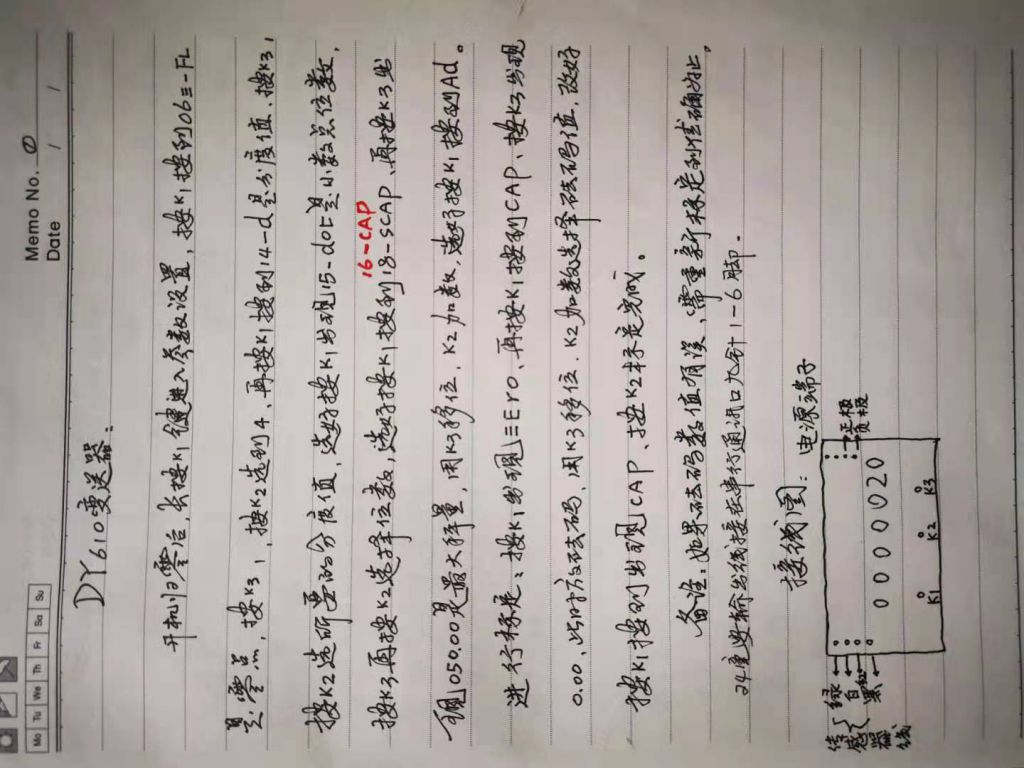 Memo No. ①
Mo Tu We Th Fr Sa Su
Date / /
DY610变送器:
开机归零后,长按K1键进入参数设置,按K1按到06≡-FL
是零点,按K3,按K2选到4,再按K1按到14-d是分度值、按K3,
按K2选所要的分度值,选好按K1出现15-dot是小数点位数,
16-CAP
按K3再按K2选择位数,选好按K1按到18-SCAP、再按K3出
现050.00是最大秤量,用K3移位、K2加数,选好按K1按到Ad。
进行标定:按K1出现≡Ero、再按K1按到CAP、按K3出现
0.00、此时方放砝码,用K3移位、K2加数选择砝码值,改好
按K1按到出现CAP、按K2标定完成。
备注:如果砝码数值有误、需重新标定到准确为止,
24重要输出线接在串行通讯口九针1-6脚.
接线图: 电源端子
正极
负极
传感器线
绿
白
黑
0 0 0 0 0 0 20
K1 K2 K3